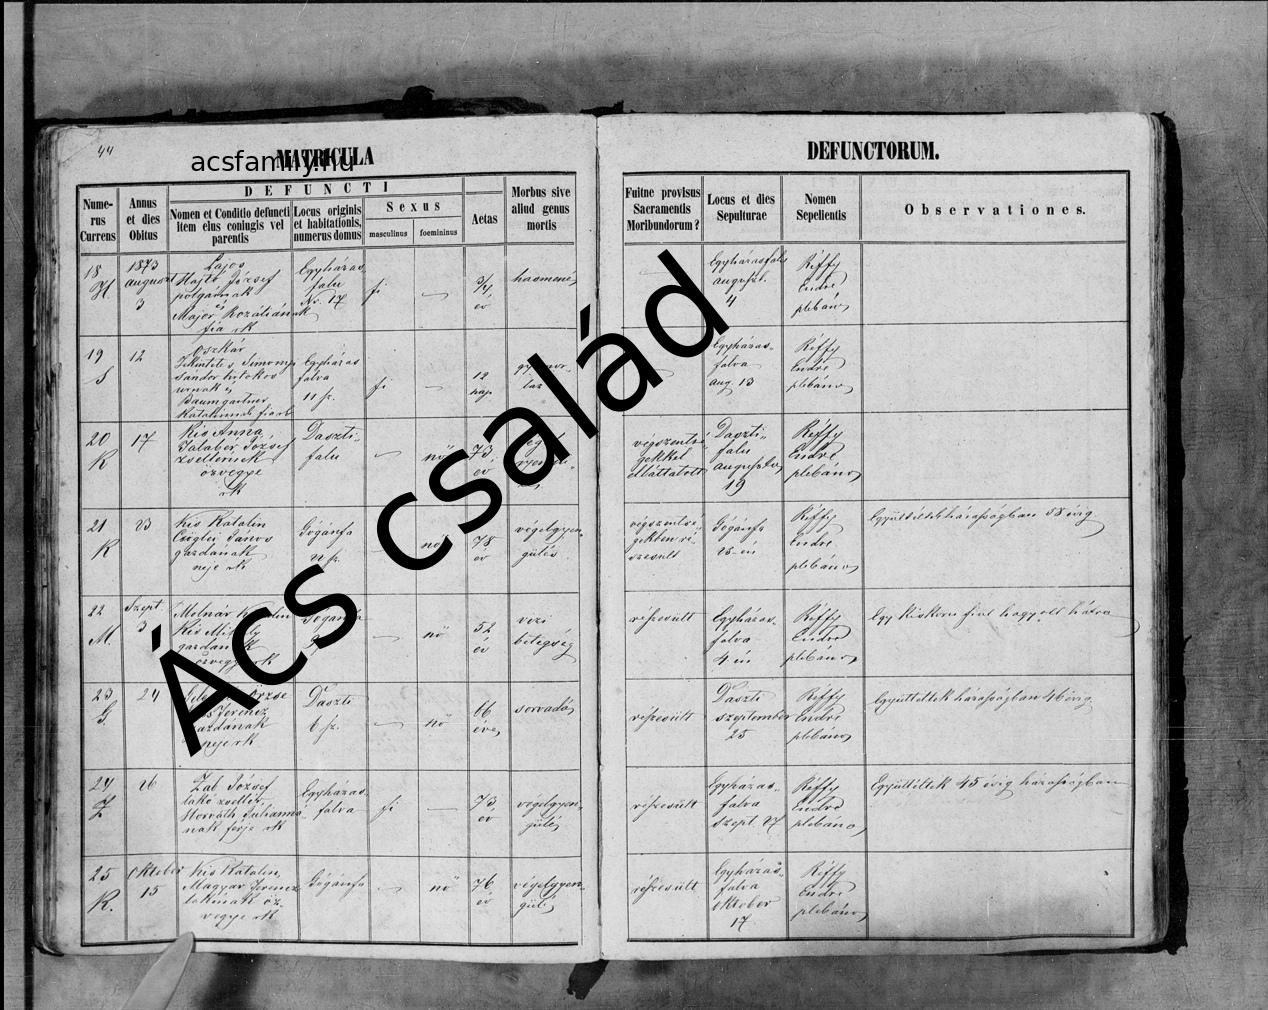 44
MATRICULA
acsfamily.hu
DEFUNCTORUM.
Nume-
rus
Currens
Annus
et dies
Obitus
DEFUNCTI
Nomen et Conditio defuncti
item eius coniugis vel
parentis
Locus originis
et habitationis,
numerus domus
Sexus
masculinus
foemininus
Aetas
Morbus sive
aliud genus
mortis
Fuitne provisus
Sacramentis
Moribundorum?
Locus et dies
Sepulturae
Nomen
Sepelientis
Observationes.
18
H
1873
3
Lajos
Hajtó József
polgárnak
és
Major Rozáliának
fia rk
Egyházas
falu
No. 17
fi
3/4
év
4
Réffy
Endre
plébános
19
S
12
Oszkár
Sándor birtokos
urnak és
Baumgartner
Egyházas
falva
11 sz.
fi
12
nap
Egyházas-
falva
aug. 13
Réffy
Endre
plébános
20
K
17
Kis Anna
József
zsellernek
özvegye
rk
Daszti-
falu
nő
73
év
elláttatott
Daszti-
falu
19
Réffy
Endre
plébános
21
K
23
Kis Katalin
Czigler János
gazdának
neje rk
Gógánfa
nő
78
év
végelgyen-
gülés
Gógánfa
25-én
Réffy
Endre
plébános
Együttéltek házasságban 58 évig
22
M.
Szept.
3
Molnár
Kis Mihály
gazdának
özvegye rk
nő
52
év
vizi
betegség
részesült
Egyházas-
falva
4-én
Réffy
Endre
plébános
Egy kiskoru fiat hagyott hátra
23
S.
24
Örzse
Ferencz
gazdának
neje rk
Daszti
6 sz.
nő
66
éves
sorvadás
részesült
Daszti
szeptember
25
Réffy
Endre
plébános
Együttéltek házasságban 46 évig
24
Z
26
Zab József
lakó zseller,
Horváth Julianna
nak férje rk
Egyházas-
falva
fi
73
év
végelgyen-
gülés
részesült
Egyházas-
falva
szept. 27
Réffy
Endre
plébános
Együttéltek 45 évig házasságban
25
K.
Oktober
15
Kis Katalin,
Magyar Ferencz
lakónak öz-
vegye rk
Gógánfa
nő
76
év
végelgyen-
gülés
részesült
Egyházas-
falva
oktober
17
Réffy
Endre
plébános
Ács család